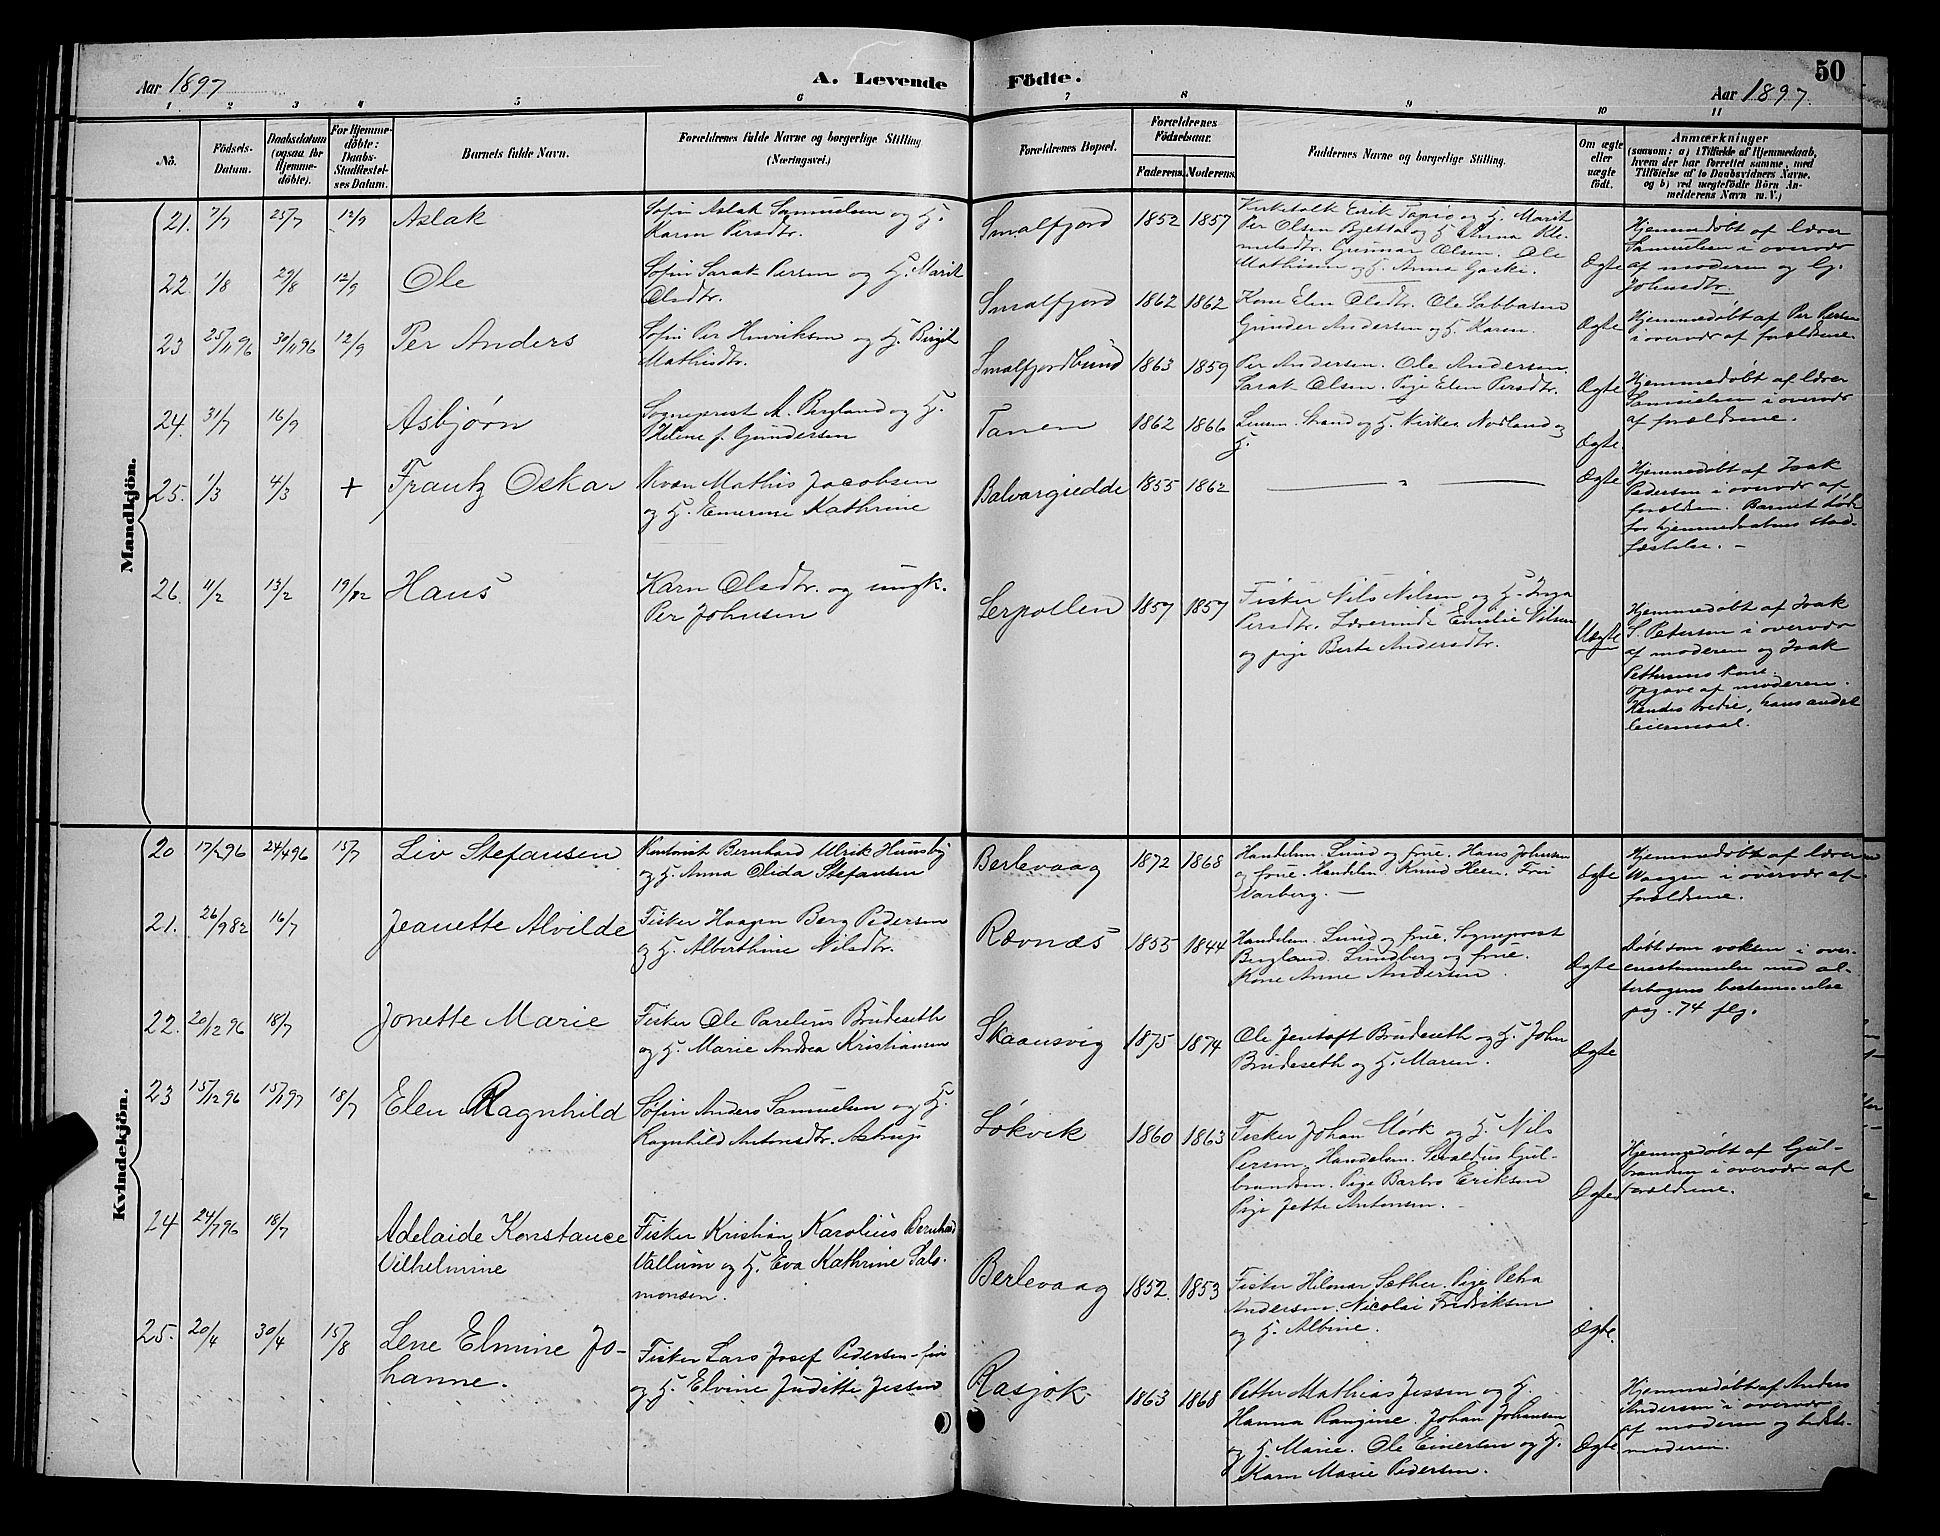 Aar 1897
A. Levende
Födte.
50
Aar 1897.
1 2 3 4 5 6 7 8 9 10 11
No.
Födsels-
Datum.
Daabsdatum
(ogsaa for
Hjemme-
döbte).
For Hjemme-
döbte:
Daabs-
Stadfæstel-
ses Datum.
Barnets fulde Navn.
Forældrenes fulde Navne og borgerlige Stilling
(Næringsvei.)
Forældrenes Bopæl.
Forældrenes
Födselsaar.
Faderens.
Moderens.
Faddernes Navne og borgerlige Stilling.
Om ægte
eller
uægte
født.
Anmærkninger
(saasom: a) i Tilfælde af Hjemmedaab,
hvem der har forrettet samme, med
Tilföielse af to Daabsvidners Navne,
og b) ved uægtefödte Börn An-
melderens Navn m. V.)
Mandkjön.
21. 7/7 25/7 12/9 Aslak
Søfin Aslak Samuelsen og H.
Karen Persdtr.
Smalfjord 1852 1857
Kirketolk Erik Tapio og H. Marit
Per Olsen Bjetta og H. Anna Kle-
metsdtr. Gunnar Olsen. Ole
Mathisen og H. Anna Gaski.
Ægte
Hjemmedøbt af lærer
Samuelsen i overvær
af moderen og G.
Johnsdtr.
22. 1/8 29/8 12/9 Ole
Søfin Sarak Persen og H. Marit
Olsdtr.
Smalfjord 1862 1862
Kone Elen Olsdtr. Ole Sabbasen
Gunder Andersen og H. Karen.
Ægte
Hjemmedøbt af Per Persen
i overvær af forældrene.
23 25/11 96 30/11 96 12/9 Per Anders
Søfin Per Henriksen og H. Birgit
Mathisdtr.
Smalfjordbund 1863 1859
Per Andersen. Ole Andersen.
Sarak Olsen. Pige Elen Persdtr.
Ægte
Hjemmedøbt af lærer
Samuelsen i overvær
af forældrene.
24. 31/7 16/9 Asbjørn
Sogneprest A. Bergland og H.
Helene f. Gundersen
Tanen 1862 1866
Lensm. Strand og H. Kirkes. Nodland og
H.
Ægte
25. 1/3 4/3 + Frantz Oskar
Kvæn Mathis Jacobsen
og H. Emerense Kathrine
Balvargiedde 1855 1862
— " —
Ægte
Hjemmedøbt af Isak
Pedersen i overvær af
forældren. Barnet døde
før hjemmedaabens stad-
fæstelse. –
26. 11/2 13/2 19/12 Hans
Karn Olsdtr. og ungk.
Per Johnsen
Lerpollen 1857 1857
Fisker Nils Nilsen og H. Inga
Persdtr. Lærerinde Emilie Nilsen
og pige Berte Andersdtr.
Uægte
Hjemmedøbt af Isak
S. Petersen i overvær
af moderen og Isak
Pettersens kone.
Opgave af moderen.
Hendes tredie, hans andet
leiermaal.
Kvindekjön.
20 17/2 96 24/4 96 15/7 Liv Stefansen
Kontorist Bernhard Ulrik Huusby
og H. Anna Olida Stefansen
Berlevaag 1872 1868
Handelsm. Lund og frue. Hans Johnsen
og frue. Handelsm. Knud Heen. Fru
Varberg. –
Ægte
Hjemmedøbt af lærer
Waagen i overvær af
forældrene.
21. 26/9 82 16/7 Jeanette Alvilde
Fisker Haagen Berg Pedersen
og H. Alberthine Nilsdtr.
Rævnæs 1855 1844
Handelsm. Lund og frue. Sogneprest
Bergland. Lundberg og frue.
Kone Anne Andersen.
Ægte
Døbt som voksen i over-
ensstemmelse med al-
terbogens bestemmelse
pag. 74 flg.
22. 20/12 96 18/7 Jonette Marie
Fisker Ole Parelius Brudeseth
og H. Marie Andrea Kristiansen
Skaansvig 1875 1874
Ole Jentoft Brudeseth og H. John
Brudeseth og H. Maren.
Ægte
23 15/12 96 15/1 97 18/7 Elen Ragnhild
Søfin Anders Samuelsen og H.
Ragnhild Antonsdtr. Astrup
Løkvik 1860 1863
Fisker Johan Mørk og H. Nils
Persen. Handelsm. Sevaldus Gul-
brandsen. Pige Barbro Eriksen
Pige Jette Antonsen.
Ægte
Hjemmedøbt af Gul-
brandsen i overvær af
forældrene.
24 24/7 96 18/7 Adelaide Konstance
Vilhelmine
Fisker Kristian Karolius Bernhard
Vallum og H. Eva Kathrine Salo-
monsen.
Berlevaag 1852. 1853
Fisker Hilmar Sæther. Pige Petra
Andersen. Nicolai Fredriksen
og H. Albine.
Ægte.
25. 20/4 30/4 15/8 Lene Elmine Jo-
hanne.
Fisker Lars Josef Pedersen
og H. Elvine Juditte Jessen
Rasjok 1863 1868
Petter Mathias Jessen og H.
Hanna Rangine. Johan Johansen
og H. Marie. Ole Einersen og H.
Karn Marie Pedersen.
Ægte
Hjemmedøbt af Anders
Andersen i overvær
af moderen og bedste-
moderen.